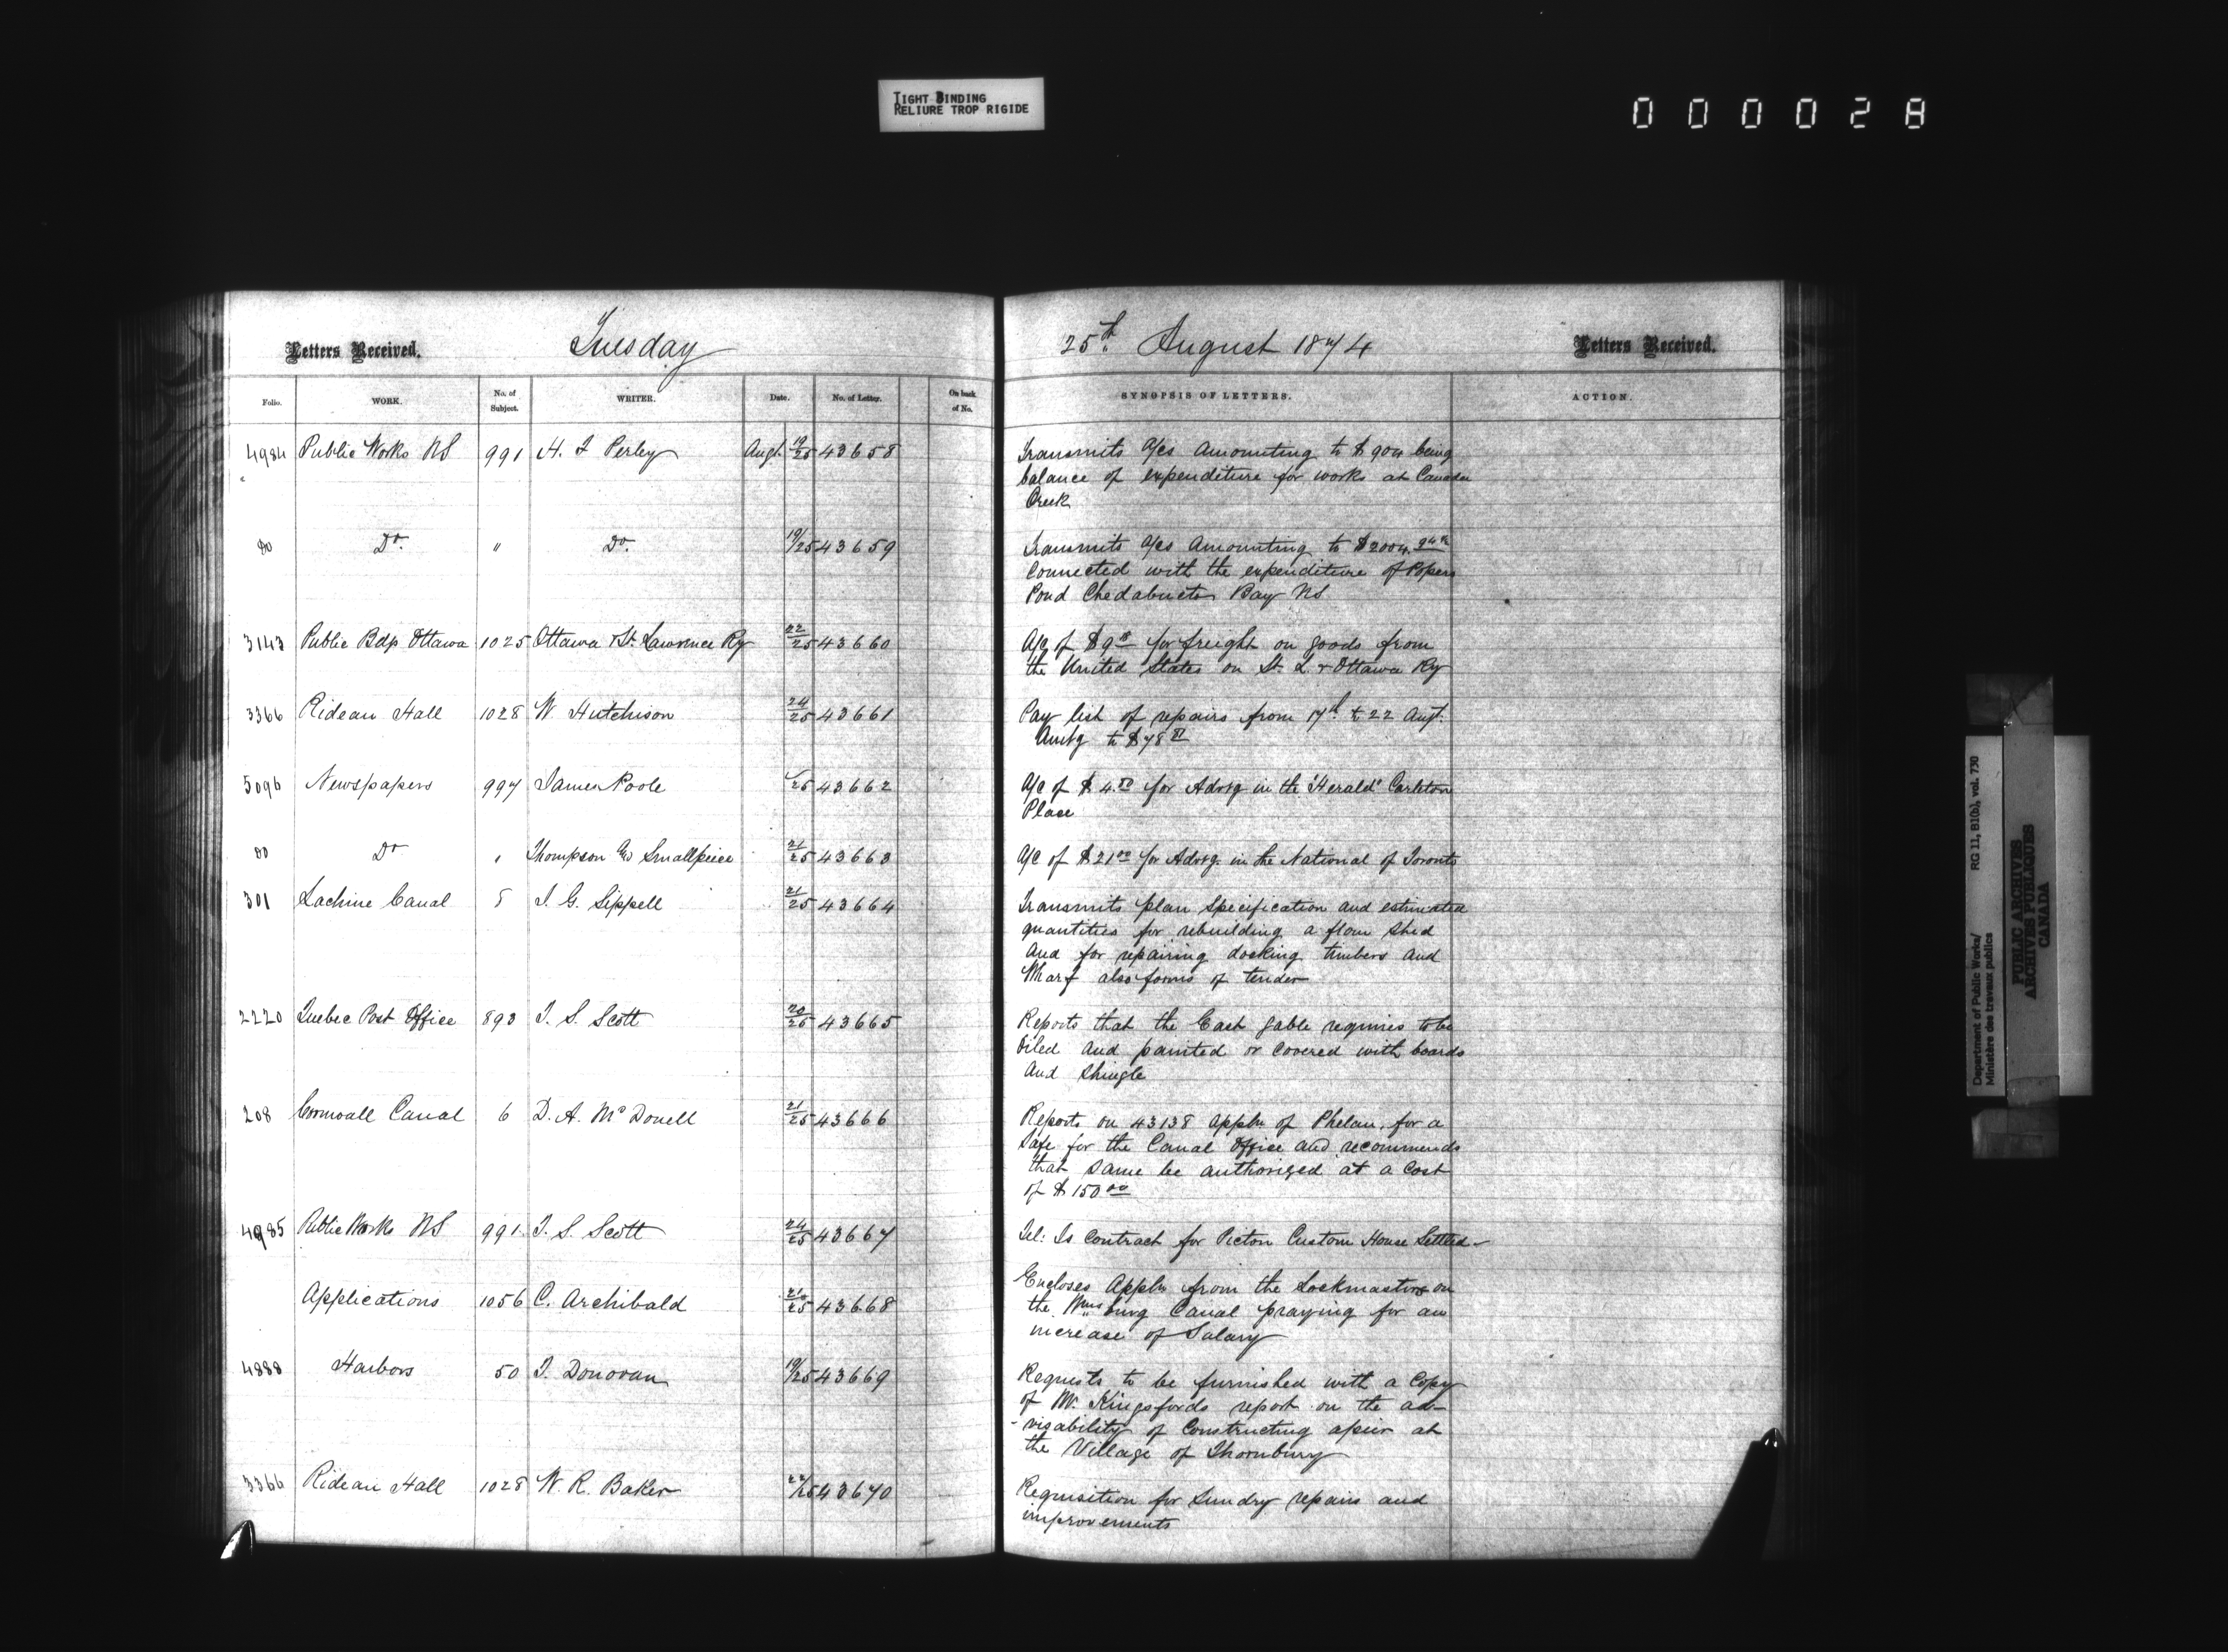 TIGHT BINDING
RELIURE TROP RIGIDE
000028
Letters Received.
Tuesday
25th August 1874
Letters Received.
Folio. WORK. No. of Subject. WRITER. Date. No. of Letter. On back of No. SYNOPSIS OF LETTERS. ACTION.
4984 Public Works NS 991 H. F Perley Augt. 19/25 43658 Transmits a/cs amounting to $904 being
balance of expenditure for works at Canada
Creek
Do Do. " Do. 19/25 43659 Transmits a/cs amounting to $2004.94
Connected with the expenditure of
Pond Chedabucto Bay NS
3143 Public Bdgs Ottawa 1025 Ottawa & St. Lawrence Ry 22/25 43660 A/c of $9 for freight on goods from
the United States on St. L & Ottawa Ry
3366 Rideau Hall 1028 W. Hutchison 24/25 43661 Pay list of repairs from 17th to 22 Augt.
Amtg to $78
5096 Newspapers 997 James Poole /25 43662 A/c of $4.50 for Advtg in the "Herald" Carleton
Place
Do Do " Thompson and Smallpeice 21/25 43663 A/c of $21.00 for Advtg. in the National of Toronto
301 Lachine Canal 5 J. G. Sippell 21/25 43664 Transmits plan specification and estimated
quantities for rebuilding a flour shed
and for repairing docking timbers and
Wharf also forms of tender
2220 Quebec Post Office 893 T. S. Scott 20/25 43665 Reports that the East gable requires to be
oiled and painted or covered with boards
and shingle
208 Cornwall Canal 6 D. A. McDonell 21/25 43666 Reports on 43138 appln of Phelan, for a
Safe for the Canal Office and recommends
that same be authorized at a cost
of $150.00
4985 Public Works NS 991 T. S. Scott 24/25 43667 Tel: Is contract for Pictou Custom House Settled
Applications 1056 C. Archibald 43668 Encloses Appln from the Lockmasters on
the Wmsburg Canal praying for an
increase of Salary
4888 Harbors 50 T. Donovan 19/25 43669 Requests to be furnished with a copy
of Mr. Kingsfords report on the ad-
-visability of constructing a pier at
the Village of Thornbury
3366 Rideau Hall 1028 W. R. Baker 43670 Requisition for Sundry repairs and
improvements
Department of Public Works/
Ministère des travaux publics
RG 11, B1(b), vol. 730
PUBLIC ARCHIVES
ARCHIVES PUBLIQUES
CANADA